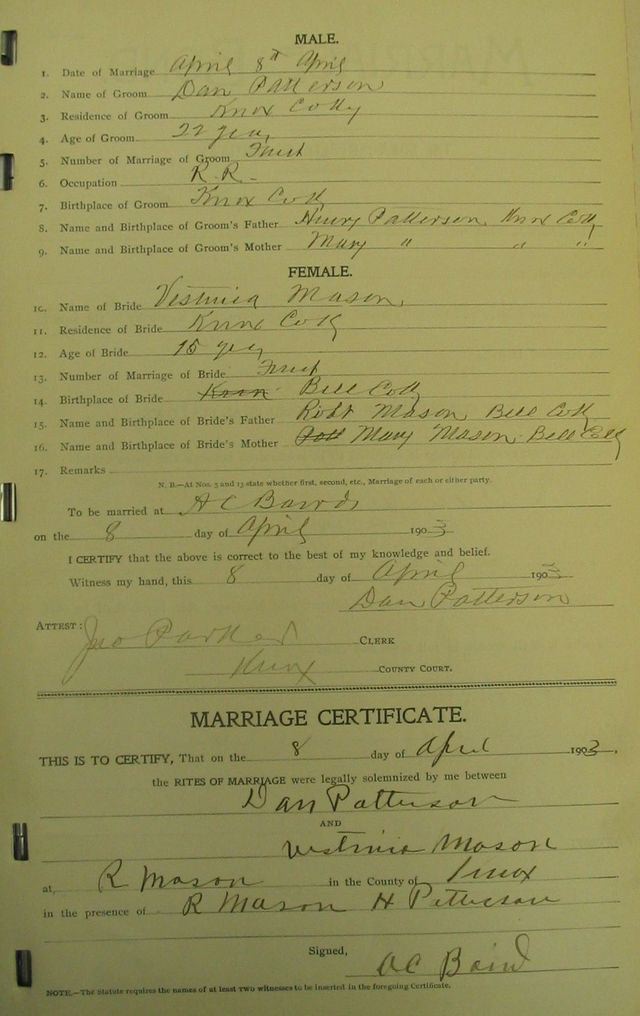 MALE.
1. Date of Marriage April 8th April
2. Name of Groom Dan Patterson
3. Residence of Groom Knox Co Ky
4. Age of Groom 22 year
5. Number of Marriage of Groom First
6. Occupation R. R. -
7. Birthplace of Groom Knox Co Ky
8. Name and Birthplace of Groom's Father Henry Patterson, Knox Co Ky
9. Name and Birthplace of Groom's Mother Mary " " "
FEMALE.
10. Name of Bride Mason,
11. Residence of Bride Knox Co Ky
12. Age of Bride 15 year
13. Number of Marriage of Bride First
14. Birthplace of Bride Knox Bell Co Ky
15. Name and Birthplace of Bride's Father Robt Mason, Bell Co Ky
16. Name and Birthplace of Bride's Mother Mary Mason. Bell Co Ky
17. Remarks
N. B.—At Nos. 5 and 13 state whether first, second, etc., Marriage of each or either party.
To be married at A C Bairds
on the 8 day of April 1903
I CERTIFY that the above is correct to the best of my knowledge and belief.
Witness my hand, this 8 day of April 1903
Dan Patterson
ATTEST: Jno Parker CLERK
Knox COUNTY COURT.
MARRIAGE CERTIFICATE.
THIS IS TO CERTIFY, That on the 8 day of April 1903.
the RITES OF MARRIAGE were legally solemnized by me between
Dan Patterson
AND
Mason
at, R Mason in the County of Knox
in the presence of R Mason H Patterson
Signed,
A C Baird
NOTE.—The Statute requires the names of at least TWO witnesses to be inserted in the foregoing Certificate.